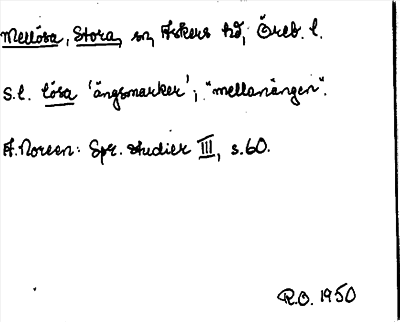 Mellösa, Stora, sn, Askers hd, Öreb. l.
S.l. lösa 'ängsmarker'; "mellanängen".
A. Noreen: Spr. studier III, s. 60.
R.O. 1950